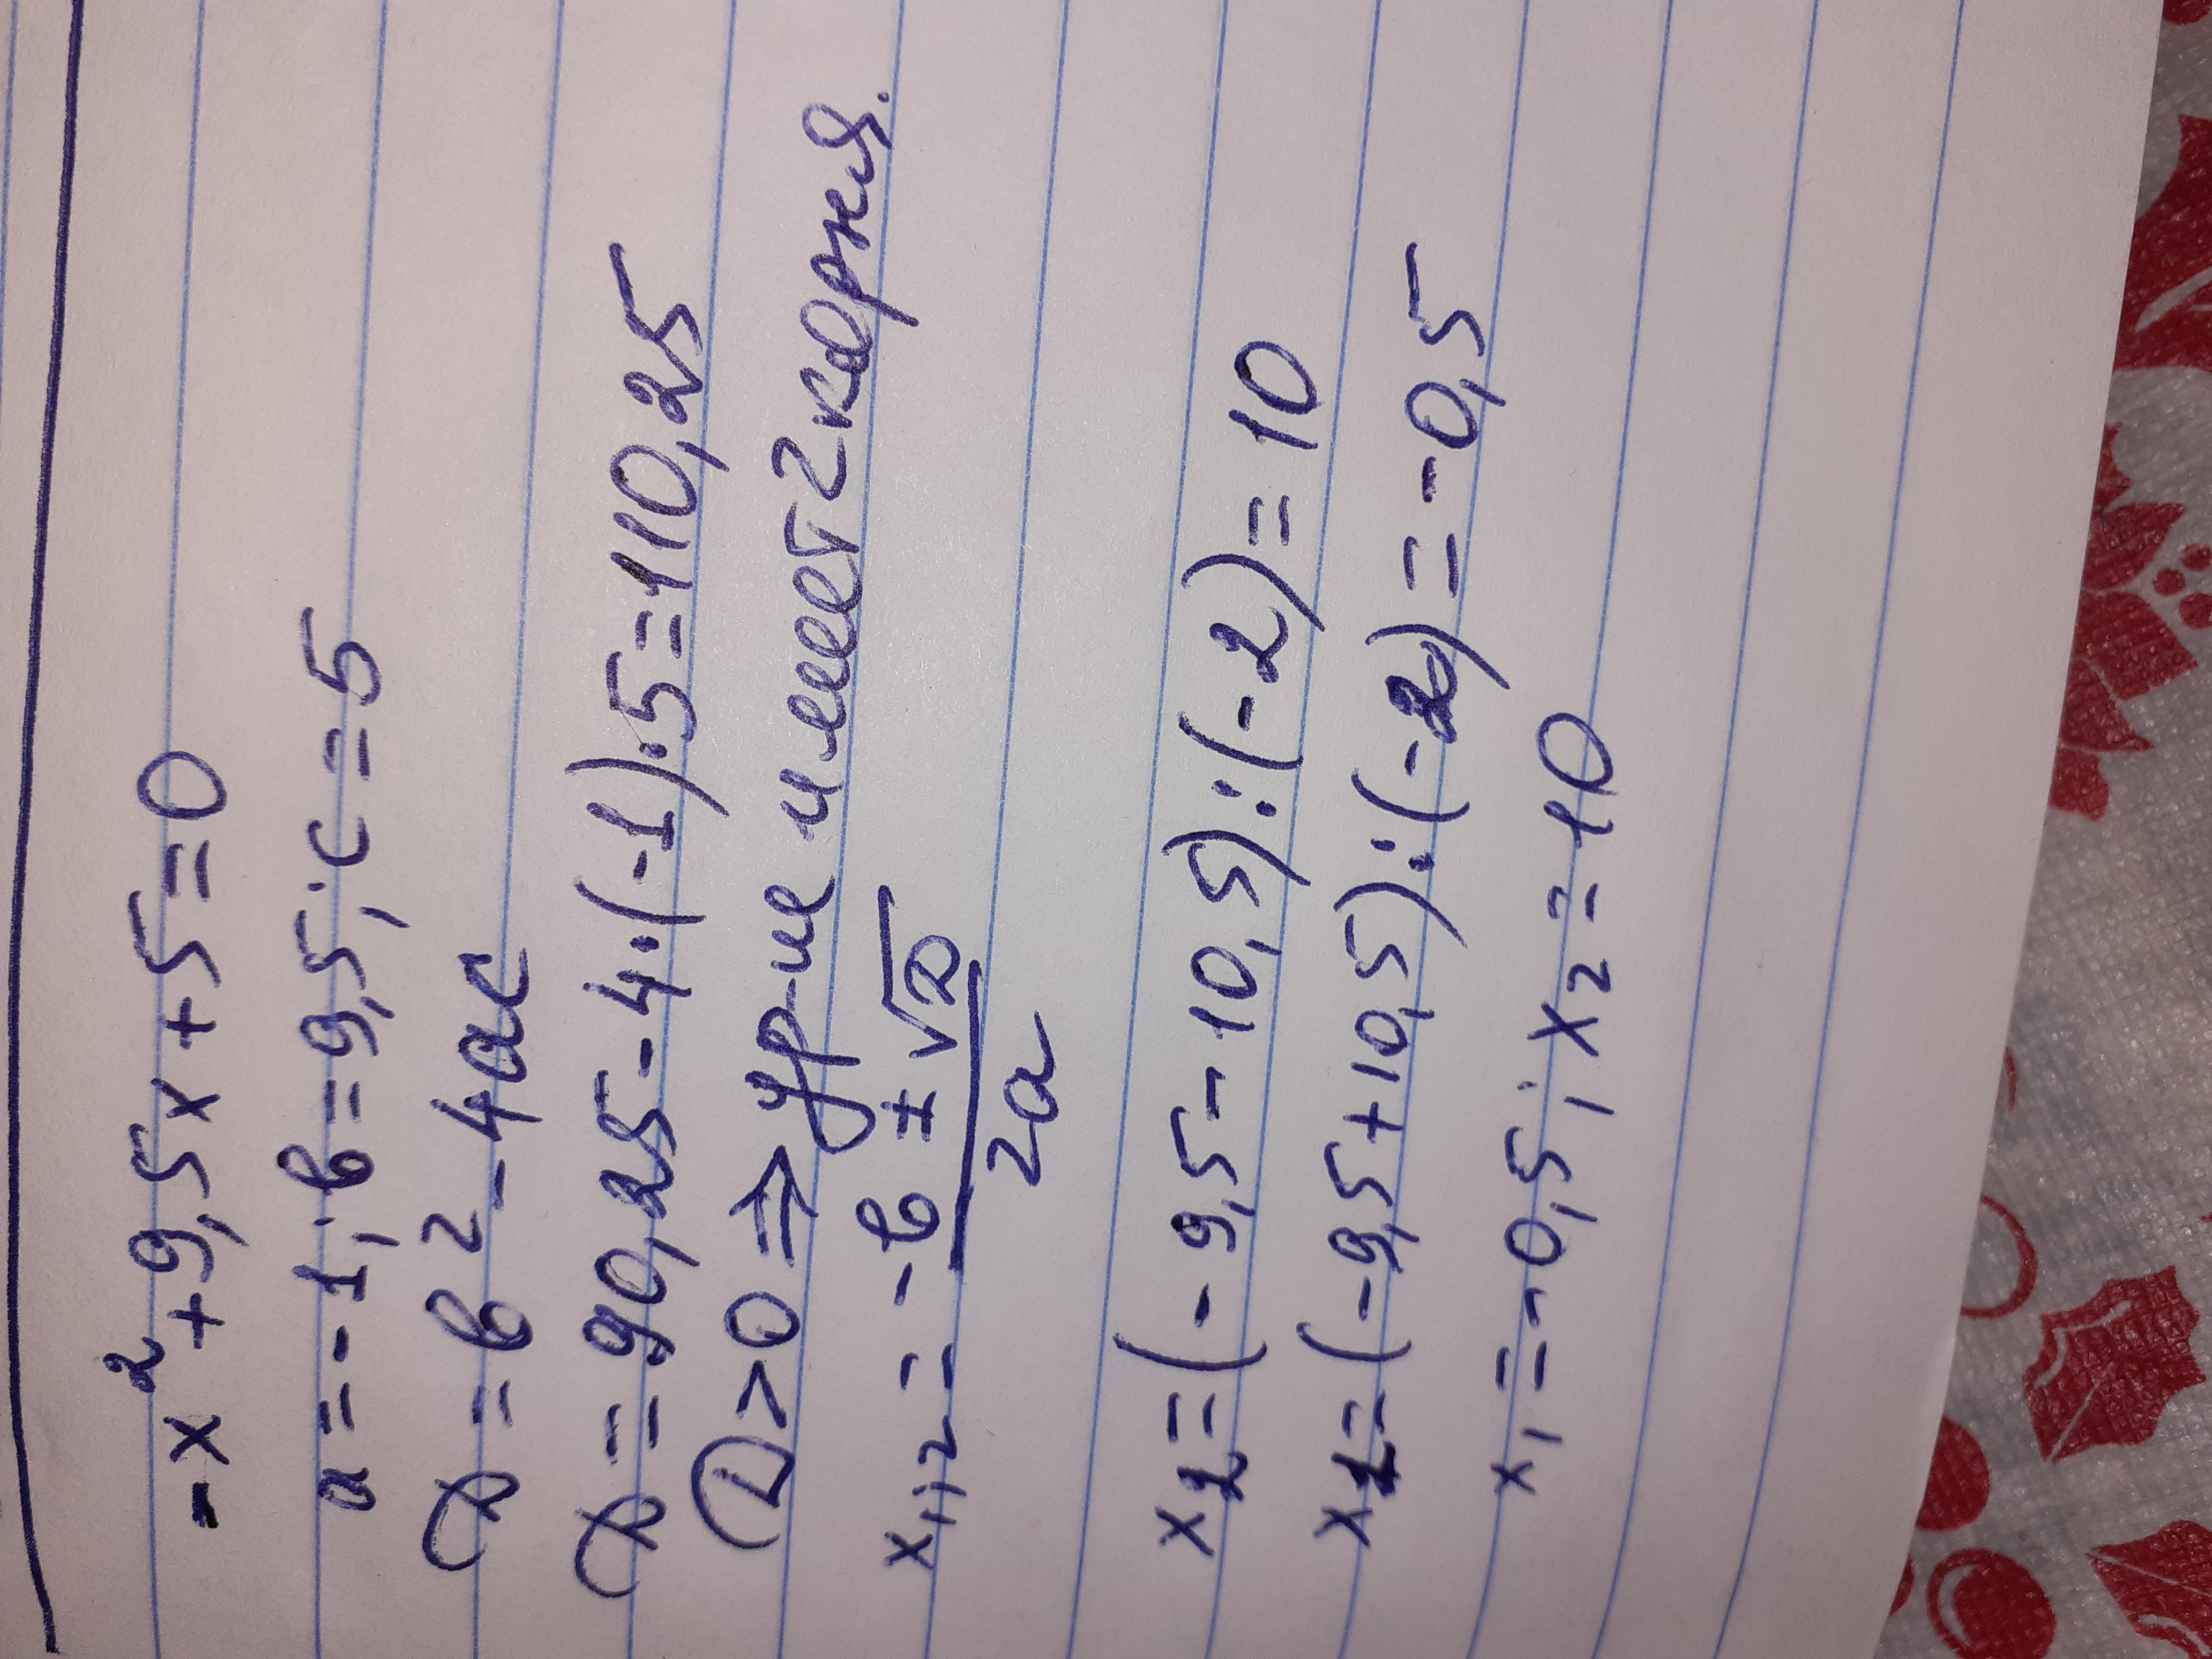 -x²+9,5x+5=0
a=-1; b=9,5; c=5
D=b²-4ac
D=90,25-4·(-1)·5=110,25
D>0⇒ур-ие имеет 2 корня.
x₁,₂=(-b±√D)/2a
x₂=(-9,5-10,5):(-2)=10
x₁=(-9,5+10,5):(-2)=-0,5
x₁=-0,5; x₂=10